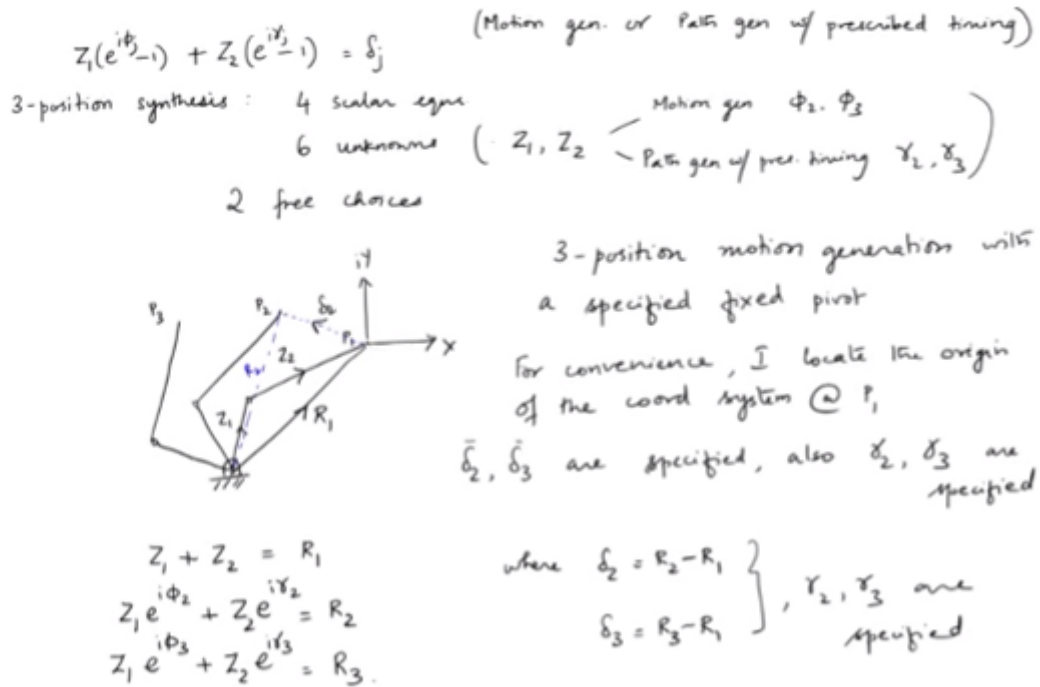 (Motion gen. or Path gen w/ prescribed timing)
Z₁(e^{iϕⱼ}-1) + Z₂(e^{iγⱼ}-1) = δⱼ
3-position synthesis : 4 scalar eqns.
6 unknowns ( Z₁, Z₂
Motion gen ϕ₂, ϕ₃
Path gen w/ pres. timing γ₂, γ₃ )
2 free choices
iY
X
P₃
P₂
δ₂
P₁
Z₂
R₂
Z₁
R₁
3-position motion generation with
a specified fixed pivot
For convenience, I locate the origin
of the coord system @ P₁
δ̄₂, δ̄₃ are specified, also γ₂, γ₃ are
specified
Z₁ + Z₂ = R₁
Z₁ e^{iϕ₂} + Z₂ e^{iγ₂} = R₂
Z₁ e^{iϕ₃} + Z₂ e^{iγ₃} = R₃.
where δ₂ = R₂-R₁
δ₃ = R₃-R₁ } , γ₂, γ₃ are
specified